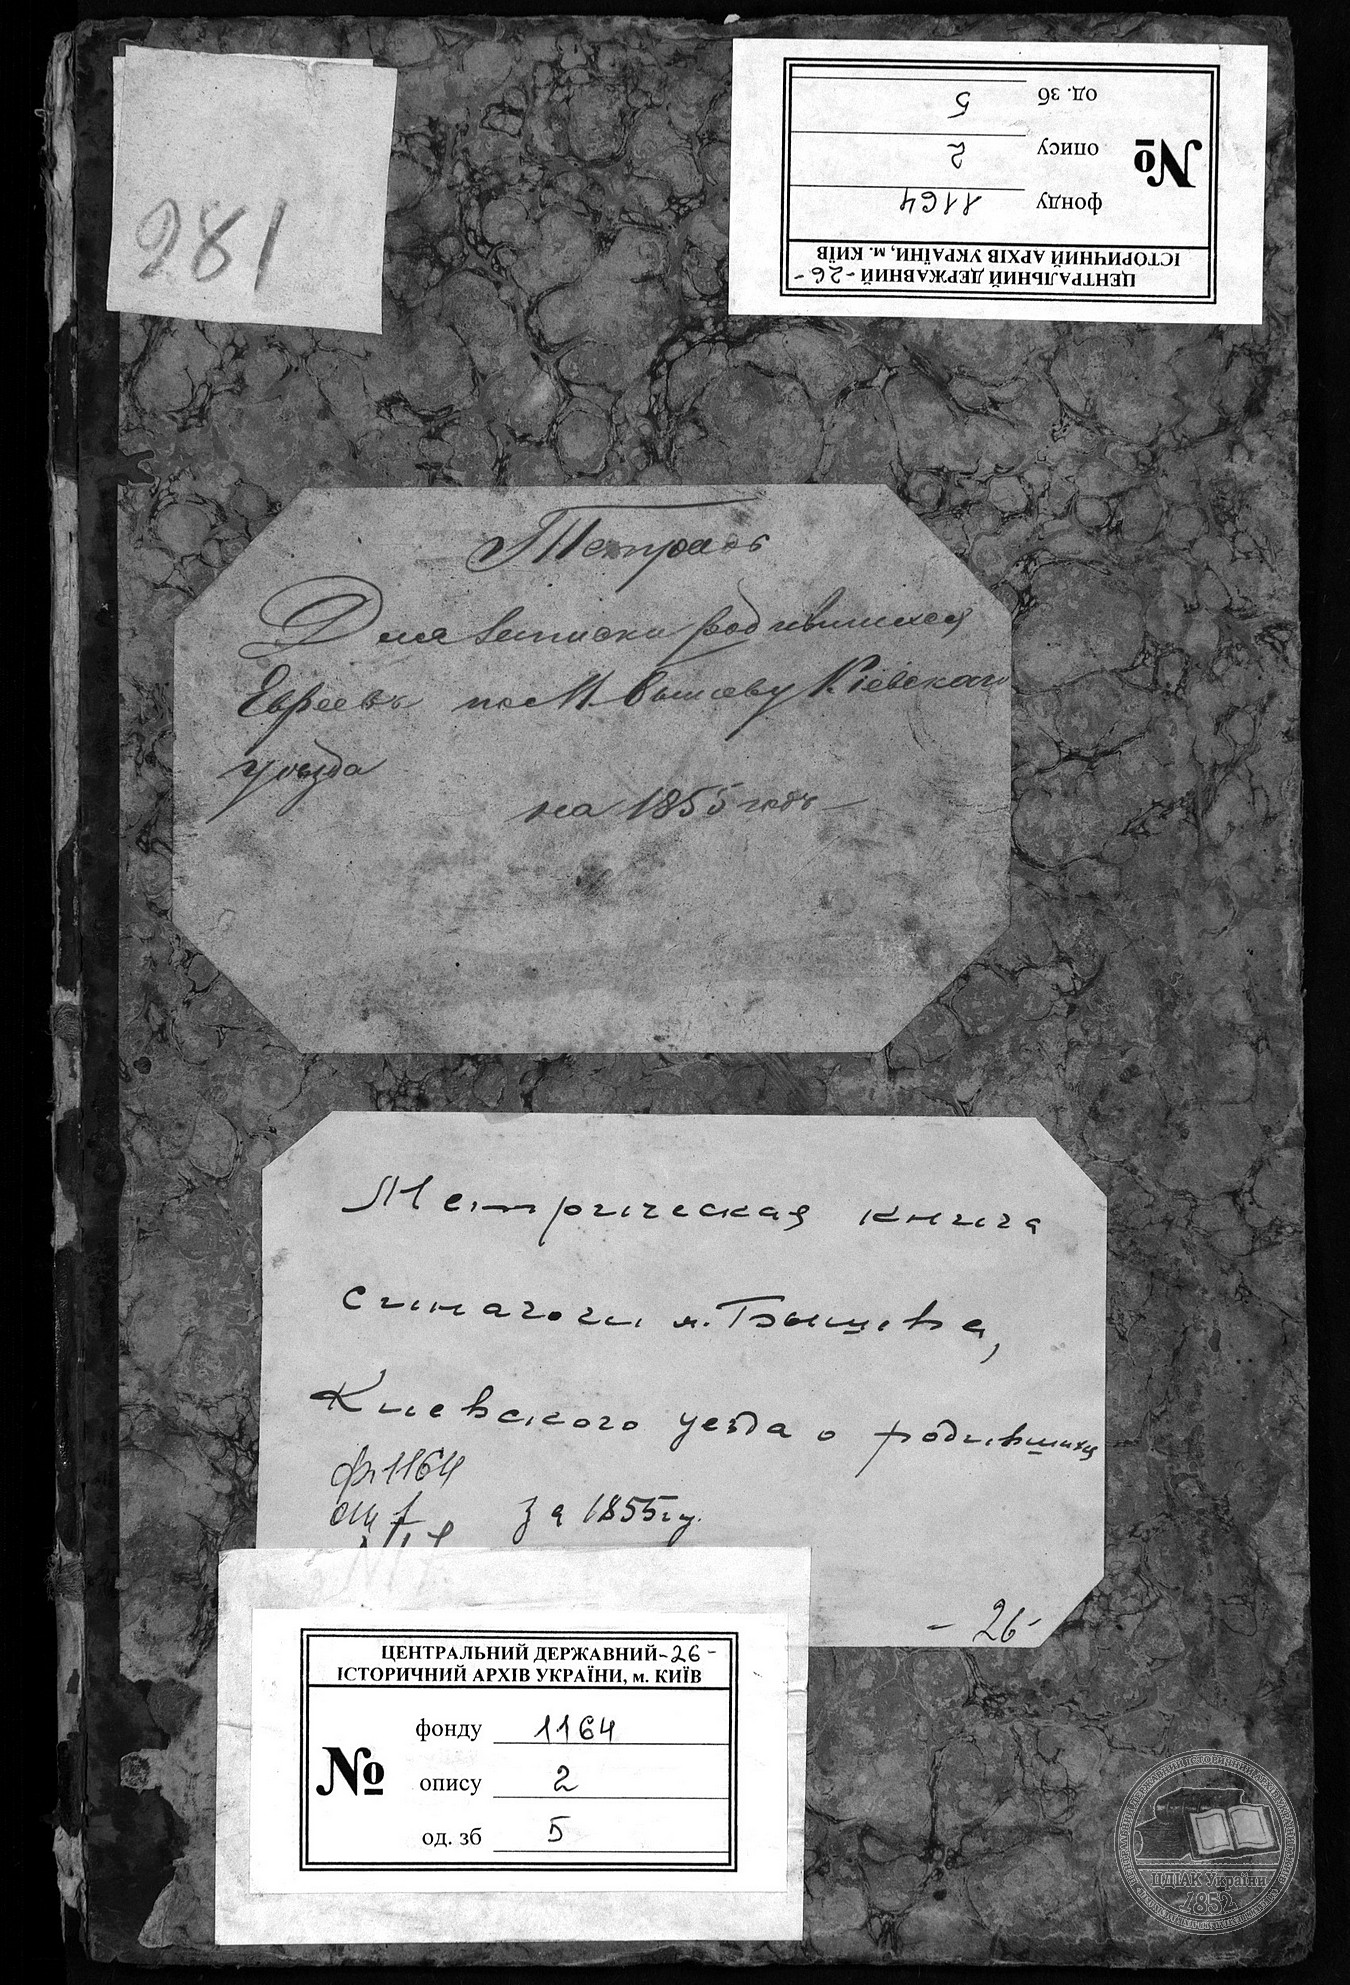 281
ЦЕНТРАЛЬНИЙ ДЕРЖАВНИЙ -26-
ІСТОРИЧНИЙ АРХІВ УКРАЇНИ, м. КИЇВ
№
фонду 1164
опису 2
од. зб 5
Тетрадь
Для записки родившихся
Евреевъ по М Бышеву Кіевскаго
уезда
на 1855 годъ
Метрическая книга
синагоги м. Бышева,
Киевского уезда о родившихся
ф. 1164
оп 1
за 1855 г.
- 26 -
ЦЕНТРАЛЬНИЙ ДЕРЖАВНИЙ -26-
ІСТОРИЧНИЙ АРХІВ УКРАЇНИ, м. КИЇВ
№
фонду 1164
опису 2
од. зб 5
ЦДІАК України
1852